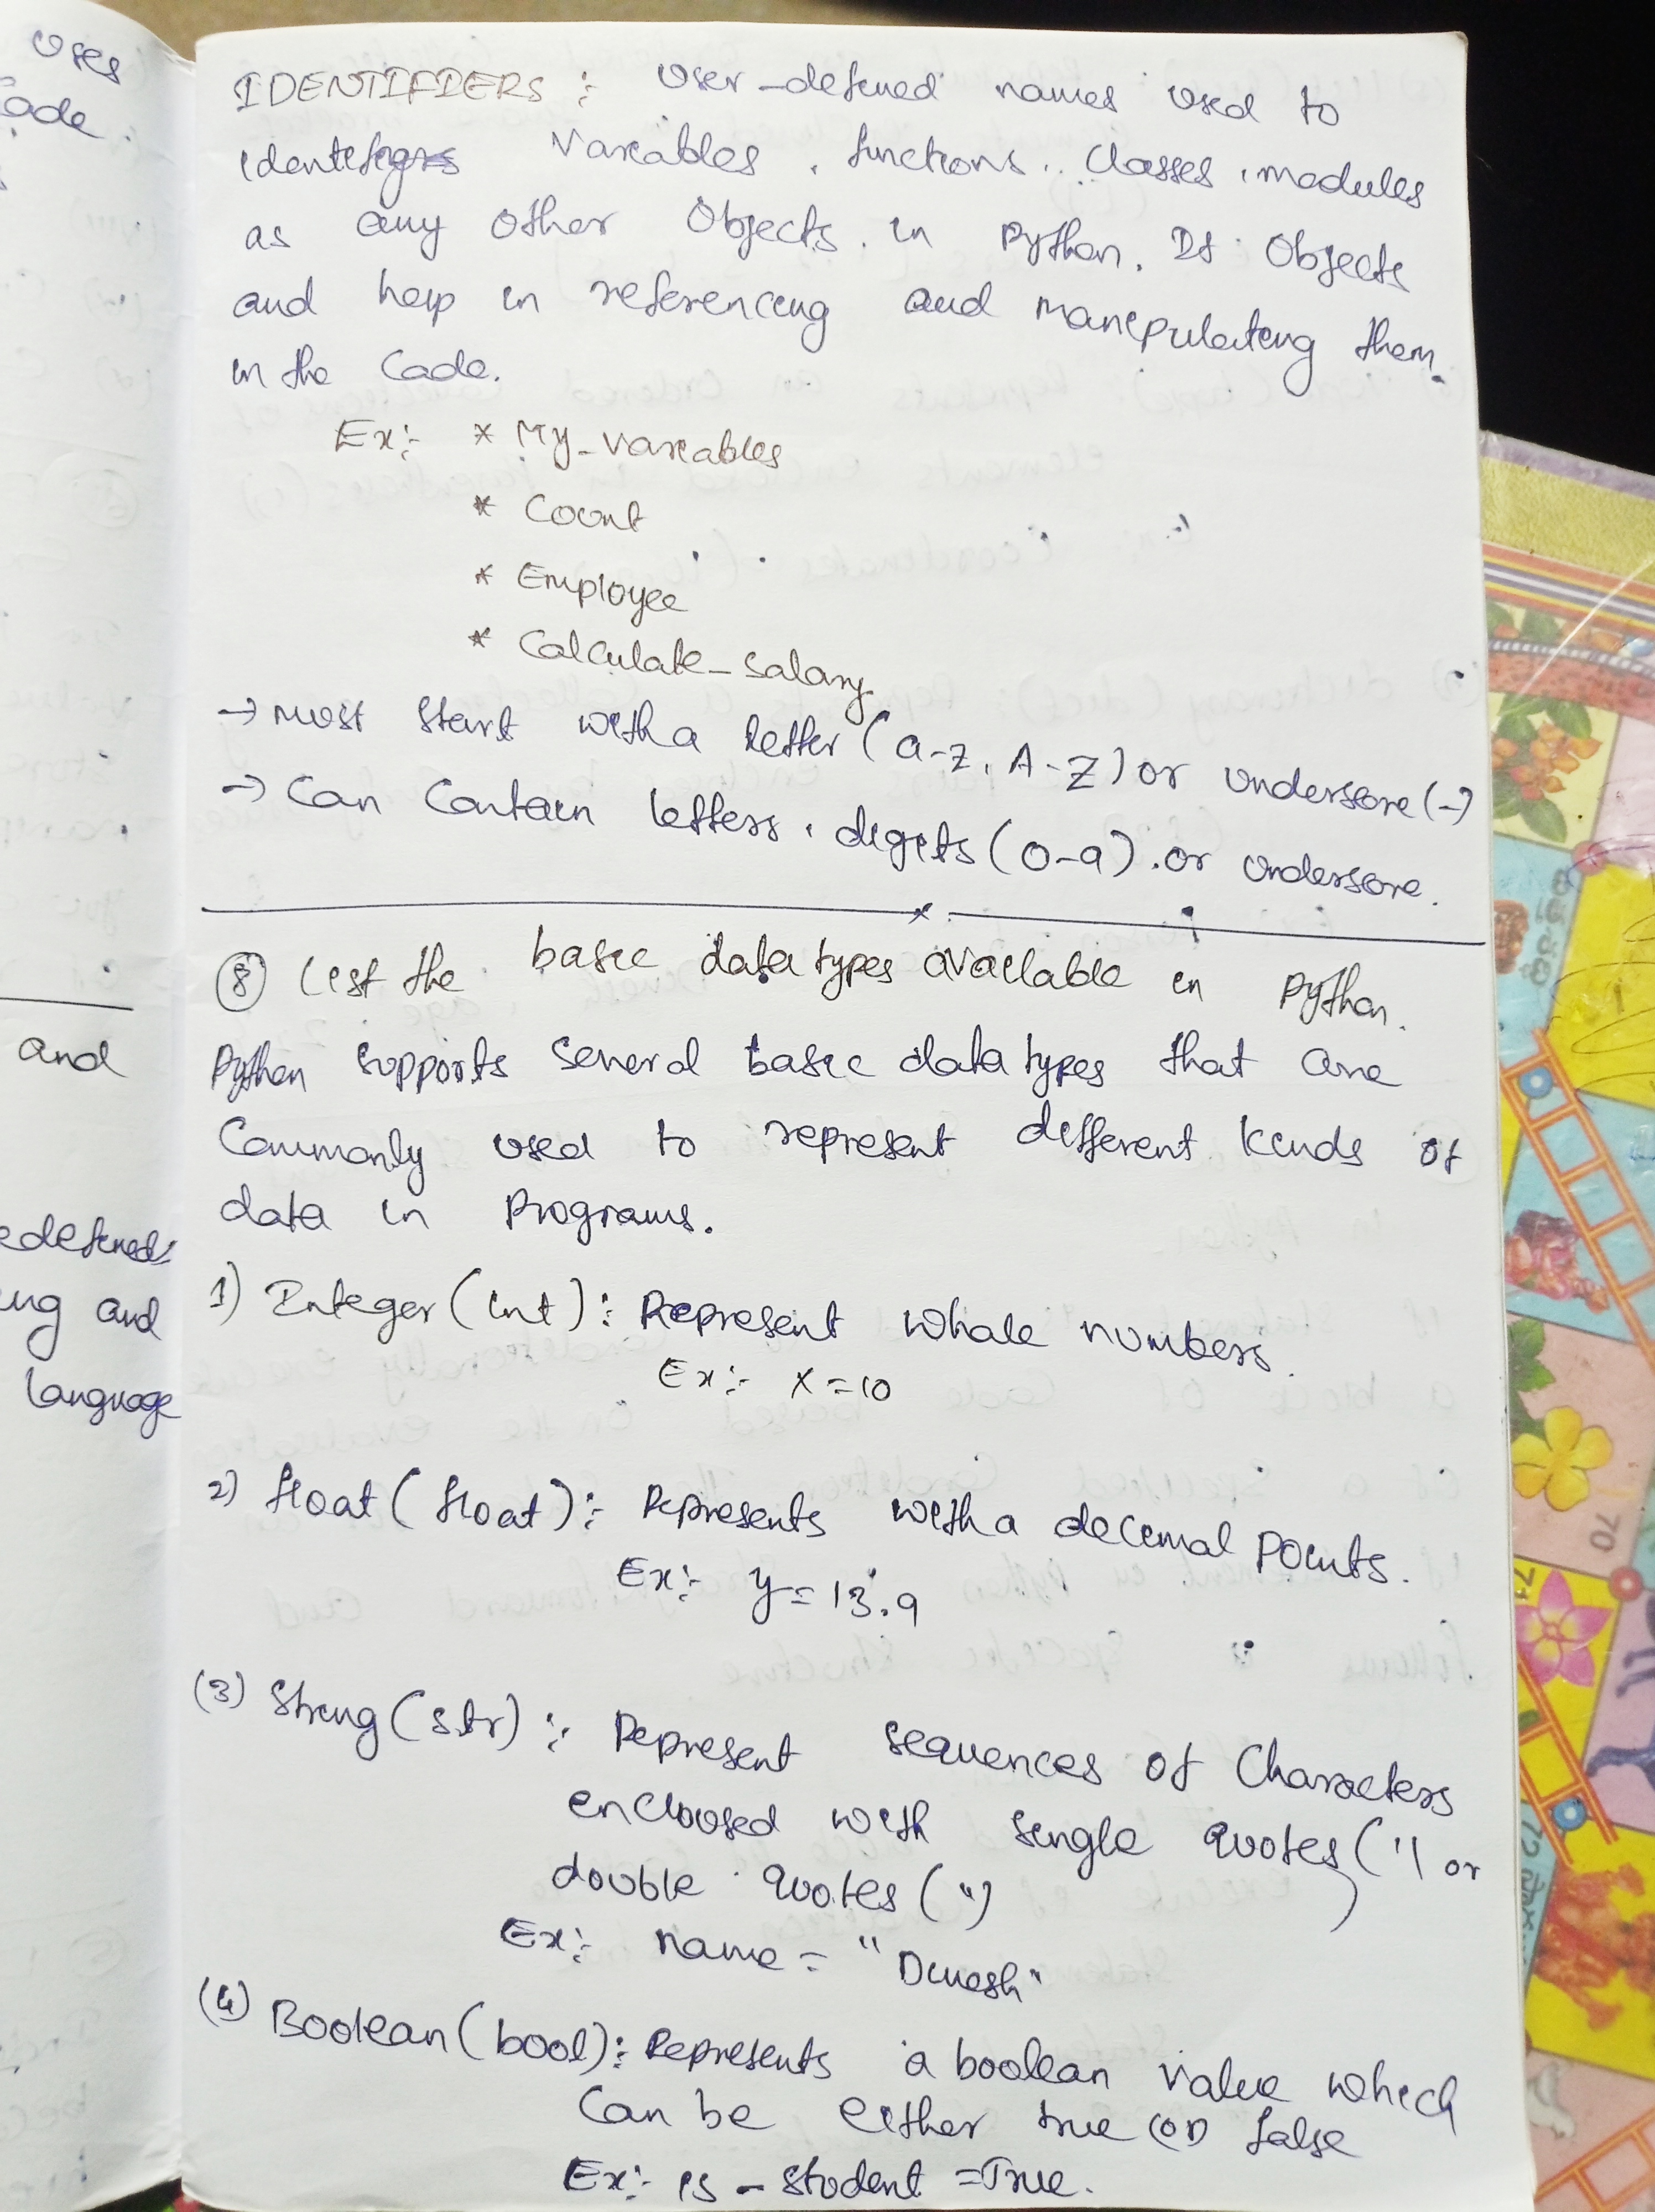 uses
code.
and
edefined
ing and
language
IDENTIFIERS : User-defined names used to
identifiers variables, functions, classes, modules
as any other objects in Python. It objects
and help in referencing and manipulating them
in the code.
Ex:- * My_variables
* Count
* Employee
* Calculate_salary
→ Must start with a letter (a-z, A-Z) or underscore (-)
→ Can contain letters, digits (0-9). or underscore.
⑧ List the basic data types available in Python.
Python supports several basic data types that are
commonly used to represent different kinds of
data in programs.
1) Integer (int): Represent whole numbers.
Ex:- x=10
2) float (float):- Represents with a decimal points.
Ex:- y=13.9
(3) String (str) :- Represent sequences of characters
enclosed with single quotes ('') or
double quotes (")
Ex:- name = "Dinesh"
(4) Boolean (bool): Represents a boolean value which
can be either true (or) false
Ex:- is-student =True.
70
72